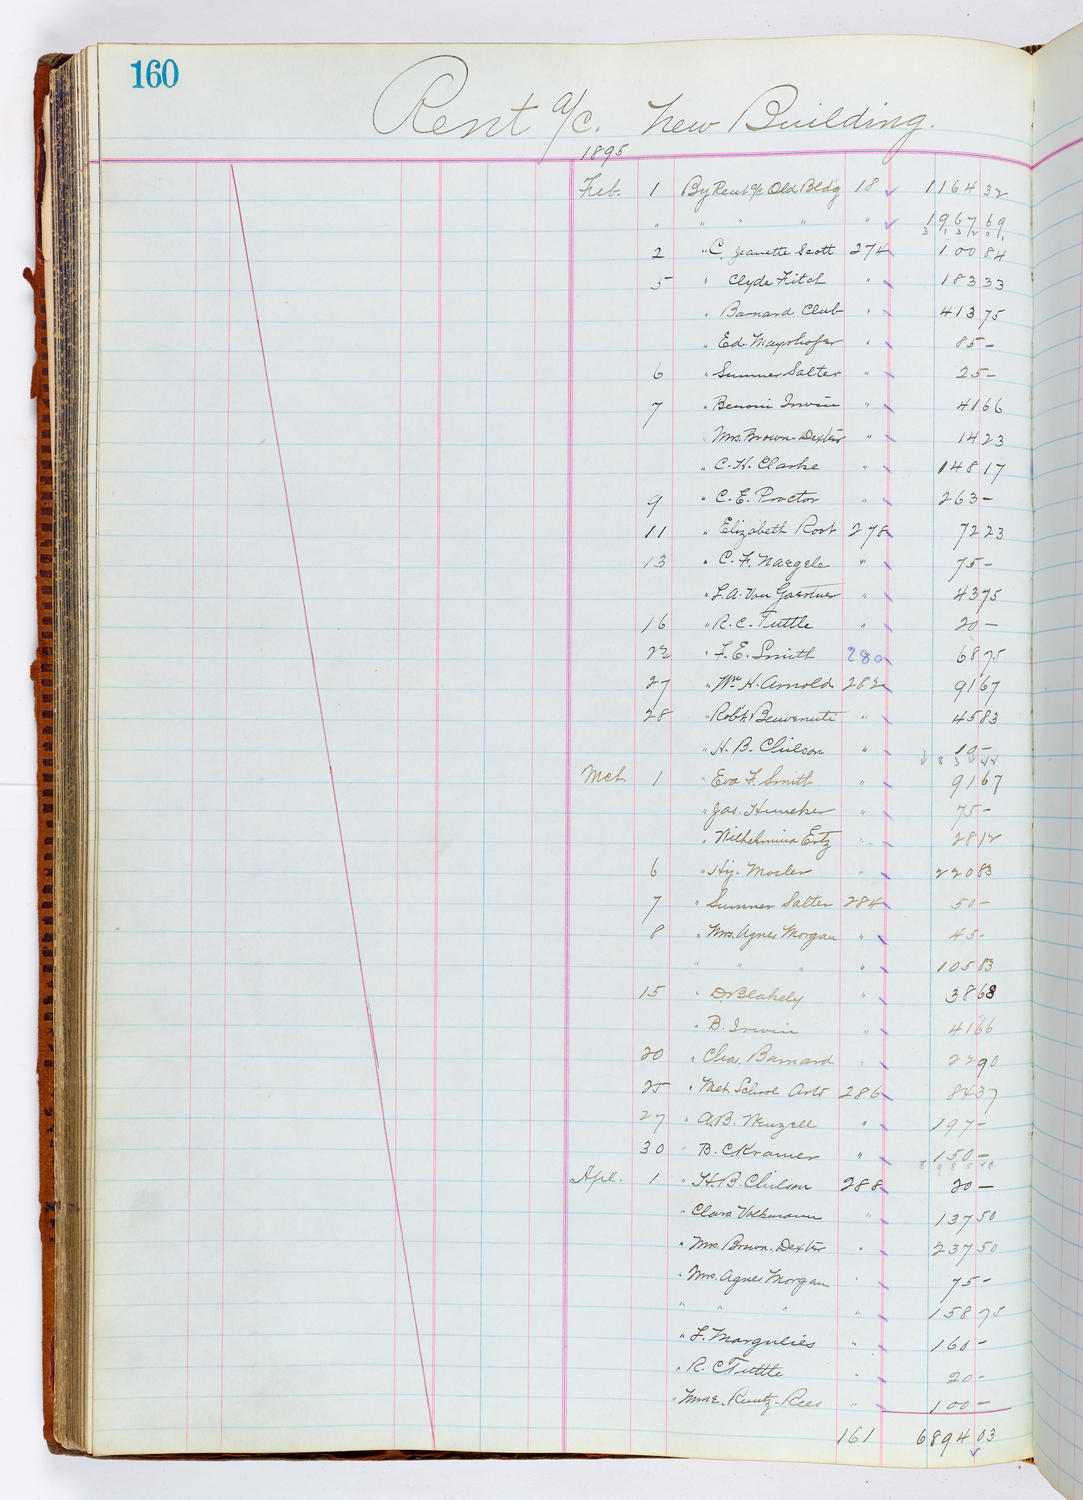 160
Rent a/c. New Building.
1895
Feb. 1 By Rent a/c Old Bldg 18 1164 32
" " " " " 1967 69
3 1 3 2 0 1
2 " C. Jeanette Scott 274 100 84
5 " Clyde Fitch " 183 33
" Barnard Club " 413 75
" Ed. Mayrhofer " 85 -
6 " Sumner Salter " 25 -
7 " Benoni Irwin " 41 66
Mrs. Brown-Dexter " 14 23
" C. H. Clarke " 148 17
9 " C. E. Proctor " 263 -
11 " Elizabeth Root 278 72 23
13 " C. F. Naegele " 75 -
" L. A. Von Gaertner " 43 75
16 " R. C. Tuttle " 20 -
22 " F. E. Smith 280 68 75
27 " Wm H. Arnold 282 91 67
28 " Robt Benvenuti " 45 83
" H. B. Chilson " 10 -
Mch 1 " Eva F. Smith " 91 67
" Jas. Huneker " 75 -
" Wilhelmina Ertz " 28 12
6 " Hy. Mosler " 220 83
7 " Sumner Salter 284 50 -
8 " Mrs. Agnes Morgan " 45 -
" " " " 105 83
15 " Dr Blakely " 38 68
" B. Irwin " 41 66
20 " Chas. Barnard " 22 90
25 " Met. School Arts 286 84 37
27 " A. B. Wenzell " 197 -
30 " B. C. Kramer " 150 -
Apl. 1 " H. B. Chilson 288 20 -
" Clara Volkmann " 137 50
" Mrs Brown-Dexter " 237 50
" Mrs. Agnes Morgan " 75 -
" " " " 158 75
" F. Margulies " 160 -
" R. C. Tuttle " 20 -
" Mme. Ruutz-Rees " 100 -
161 6894 03